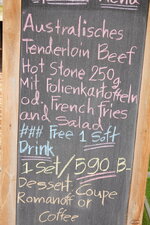 Menu
Australisches
Tenderloin Beef
Hot Stone 250g
Mit Folienkartoffeln
od. French Fries
and Salad
### Free 1 Soft
Drink
1 Set/590 B-
Dessert Coupe
Romanoff or
Coffee